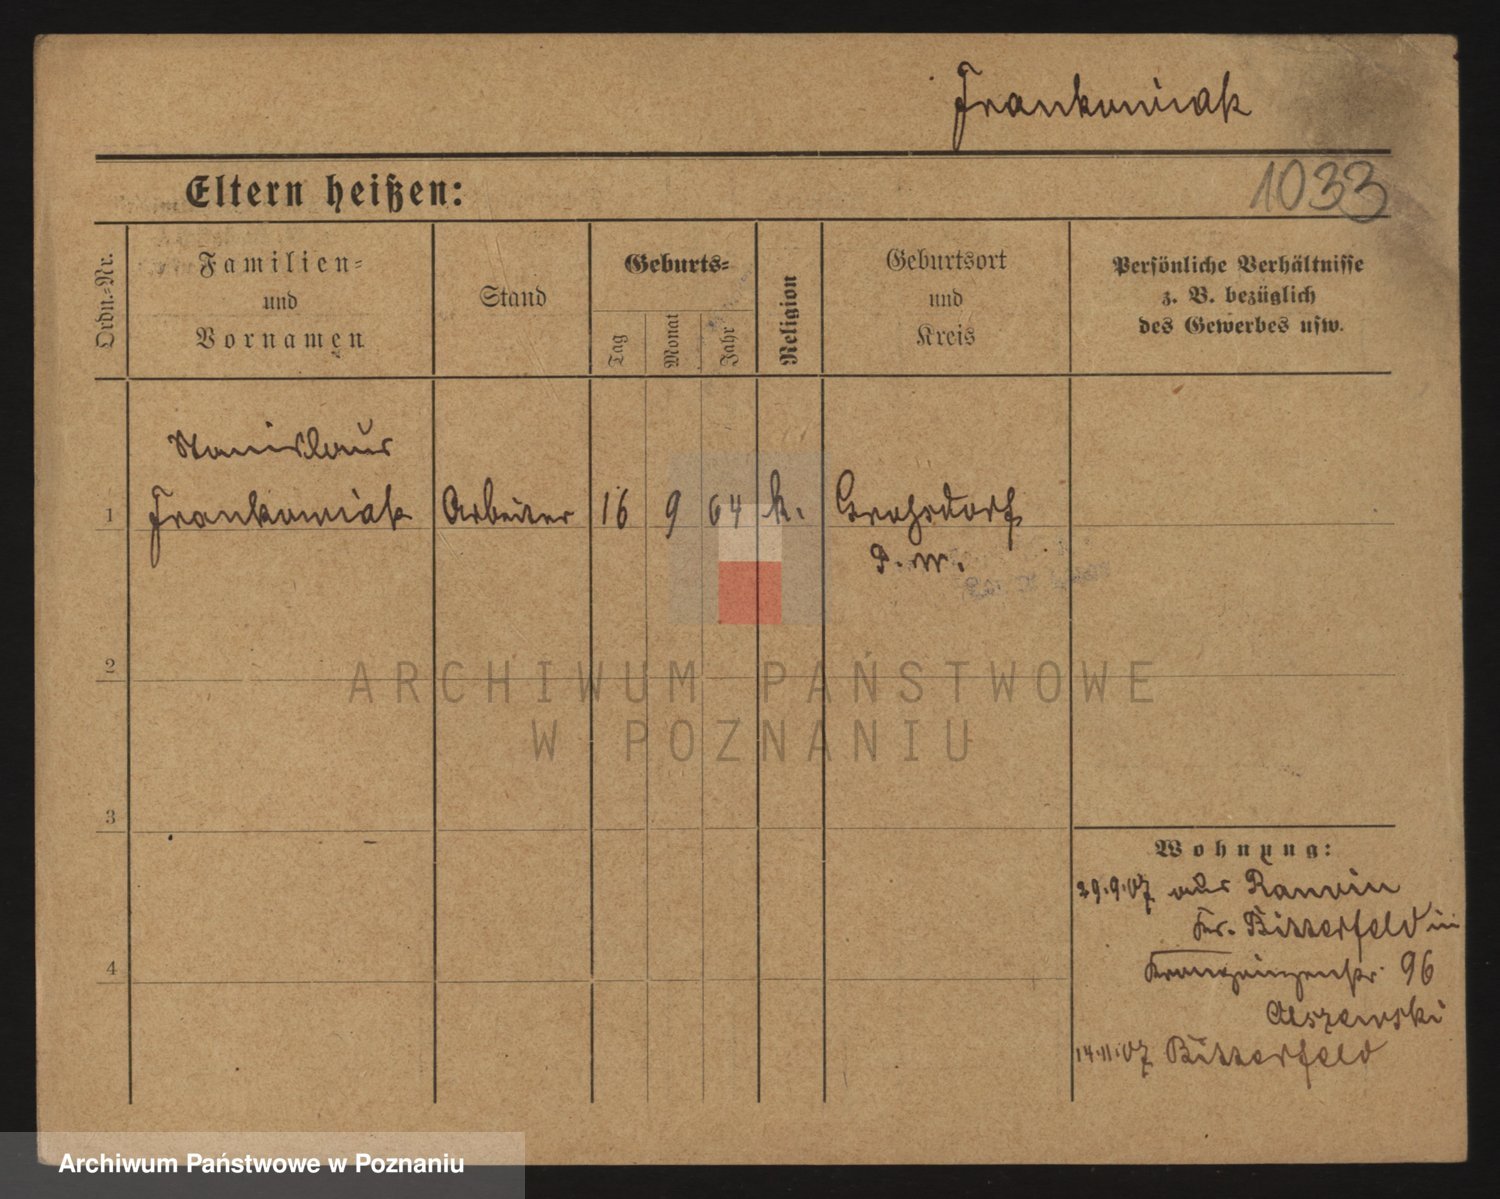 Frankowiak
1033
Eltern heißen:
Ordn.-Nr.
Familien-
und
Vornamen
Stand
Geburts-
Tag
Monat
Jahr
Religion
Geburtsort
und
Kreis
Persönliche Verhältnisse
z. B. bezüglich
des Gewerbes usw.
Stanislaus
1 Frankowiak Arbeiter 16 9 64 k. Grohsdorf
P. W.
2
ARCHIWUM PAŃSTWOWE
W POZNANIU
3
Wohnung:
29.9.07 aus Ramsin
Kr. Bitterfeld in
4
Kronprinzenstr. 96
Olszewski
14.11.07 Bitterfeld
Archiwum Państwowe w Poznaniu